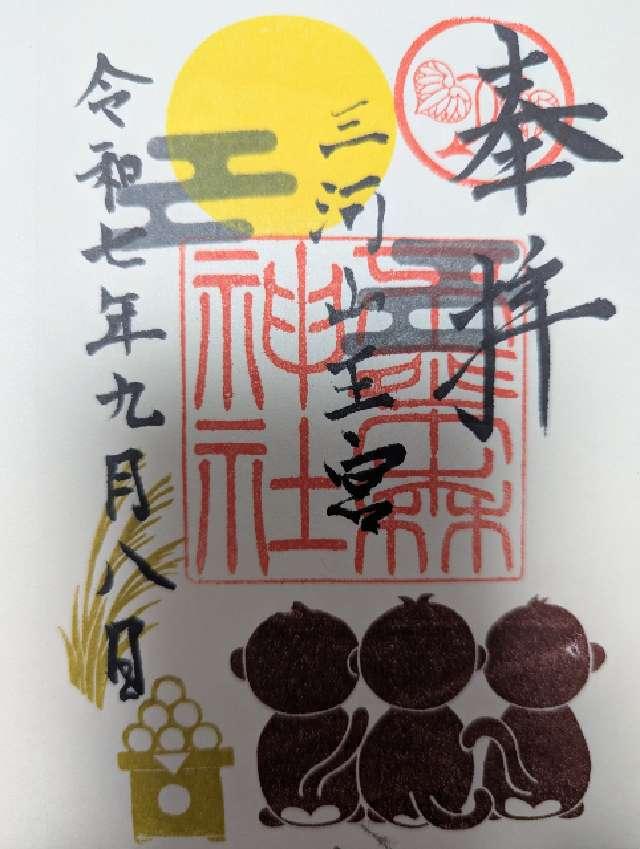 奉拝
三河山王宮
神社
令和七年九月八日